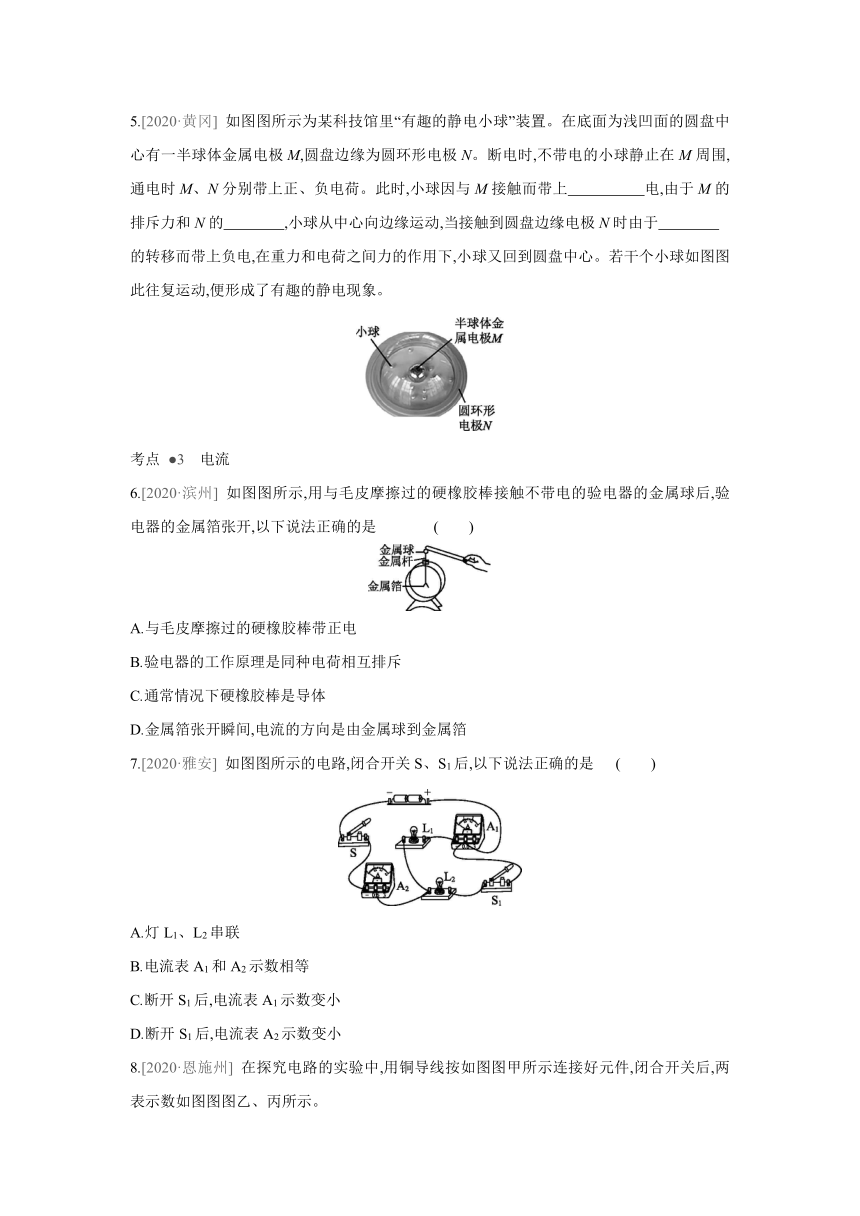 5.[2020·黄冈] 如图图所示为某科技馆里“有趣的静电小球”装置。在底面为浅凹面的圆盘中
心有一半球体金属电极 M,圆盘边缘为圆环形电极 N。断电时,不带电的小球静止在 M 周围,
通电时 M、N 分别带上正、负电荷。此时,小球因与 M 接触而带上__________电,由于 M 的
排斥力和 N 的________,小球从中心向边缘运动,当接触到圆盘边缘电极 N 时由于________
的转移而带上负电,在重力和电荷之间力的作用下,小球又回到圆盘中心。若干个小球如图图
此往复运动,便形成了有趣的静电现象。
小球
半球体金
属电极M
圆环形
电极N
考点 ●3 电流
6.[2020·滨州] 如图图所示,用与毛皮摩擦过的硬橡胶棒接触不带电的验电器的金属球后,验
电器的金属箔张开,以下说法正确的是 ( )
金属球
金属杆
金属箔
A.与毛皮摩擦过的硬橡胶棒带正电
B.验电器的工作原理是同种电荷相互排斥
C.通常情况下硬橡胶棒是导体
D.金属箔张开瞬间,电流的方向是由金属球到金属箔
7.[2020·雅安] 如图图所示的电路,闭合开关 S、S1 后,以下说法正确的是 ( )
− +
S
L1
A
A1
A
A2
L2
S1
A.灯 L1、L2 串联
B.电流表 A1 和 A2 示数相等
C.断开 S1 后,电流表 A1 示数变小
D.断开 S1 后,电流表 A2 示数变小
8.[2020·恩施州] 在探究电路的实验中,用铜导线按如图图甲所示连接好元件,闭合开关后,两
表示数如图图图乙、丙所示。